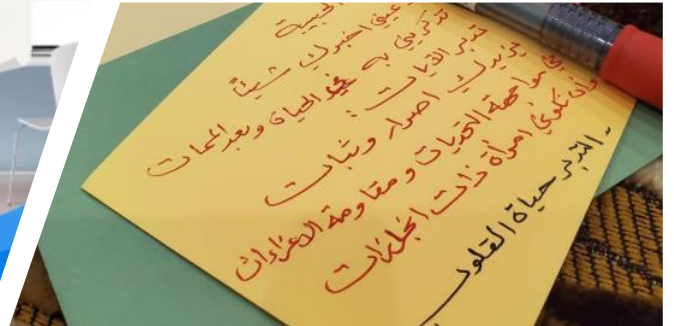 الحبيبة
دعيني اخبرك شيئاً
تذكريني به في الحياة وبعد الممات
تدبر القرآن:
يزيدك اصرار وثبات
في مواجهة التحديات ومقاومة الاغراءات
وأن تكوني امرأة ذات انجازات
التدبر حياة القلوب